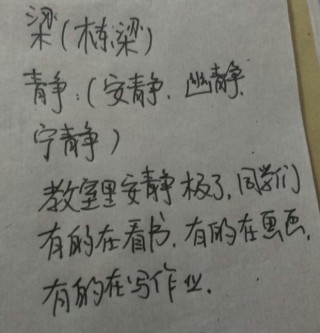 梁(栋梁)
青静:(安静、幽静、
宁静)
教室里安静极了,同学们
有的在看书,有的在画画,
有的在写作业.